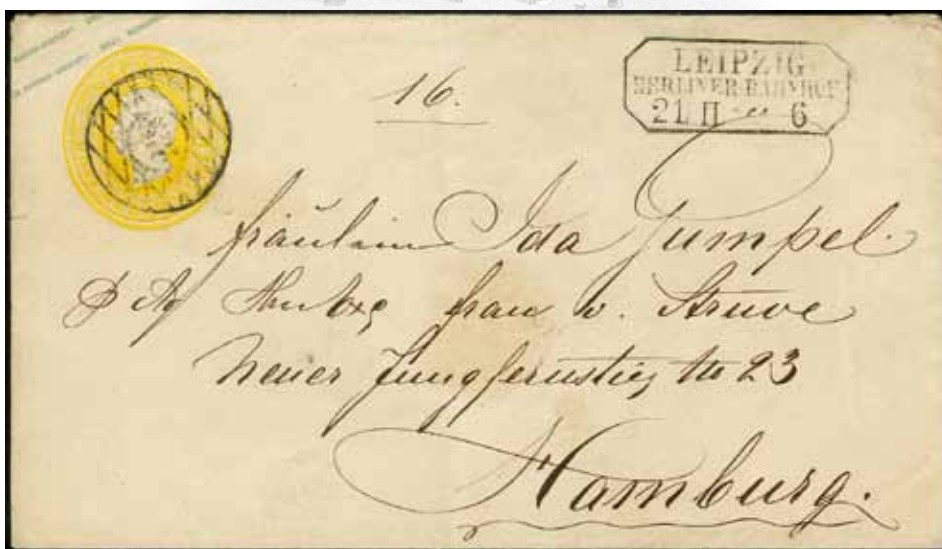 16.
LEIPZIG
BERLINER-BAHNHOF
21 II 6
Fräulein Ida Gumpel.
frau v. Struve
Neuer Jungfernstieg No 23
Hamburg.